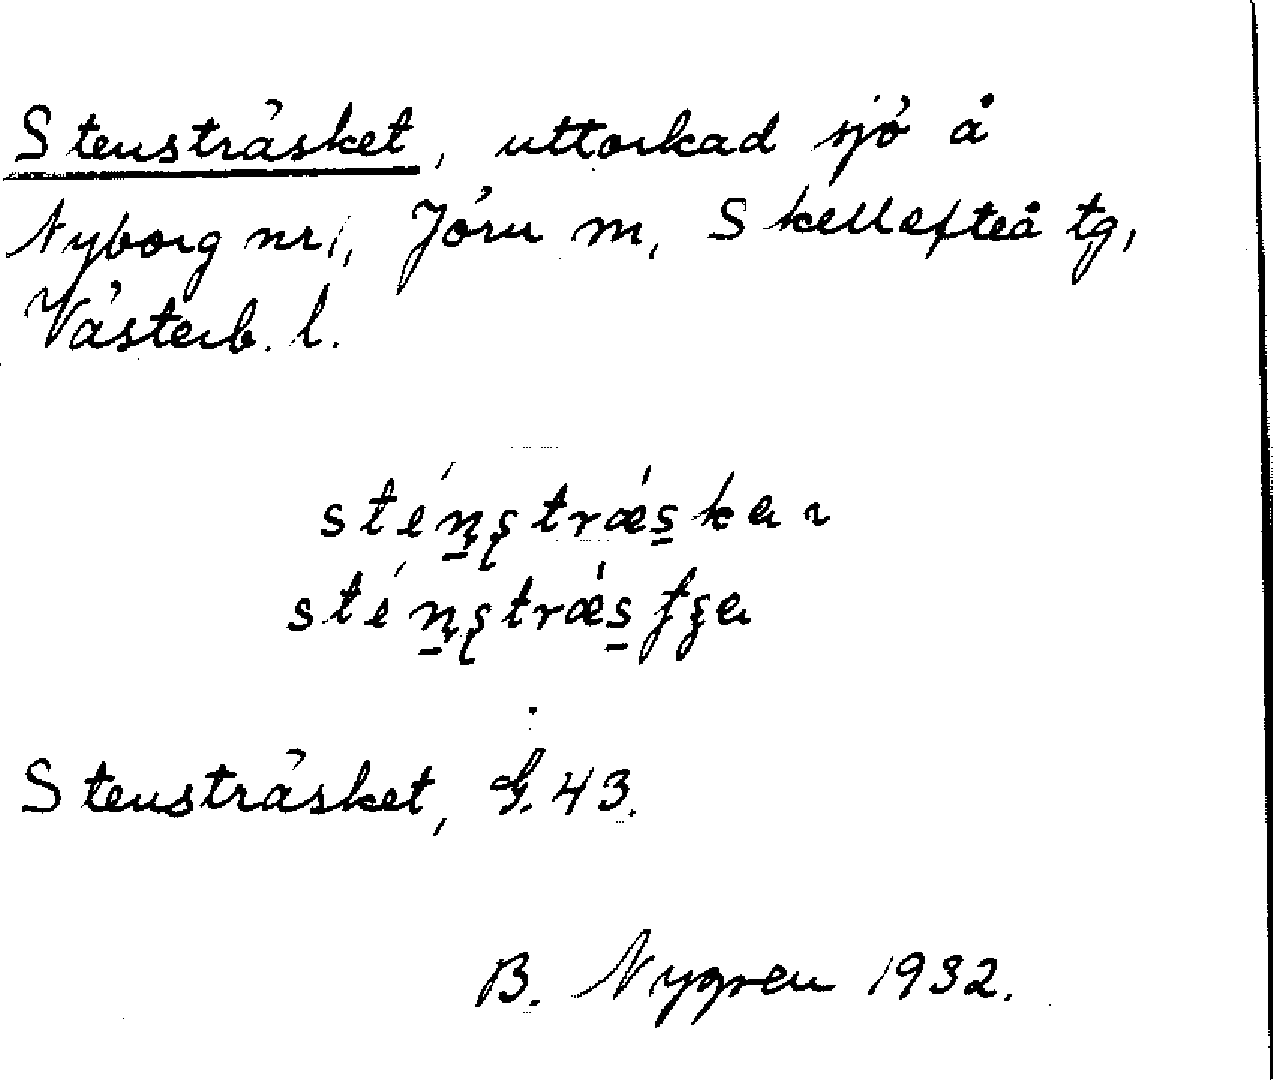 Stensträsket, uttorkad sjö å
Nyborg nr 1, Jörn sn, Skellefteå tg,
Västerb. l.
Stensträsket, G. 43.
B. Nygren 1932.